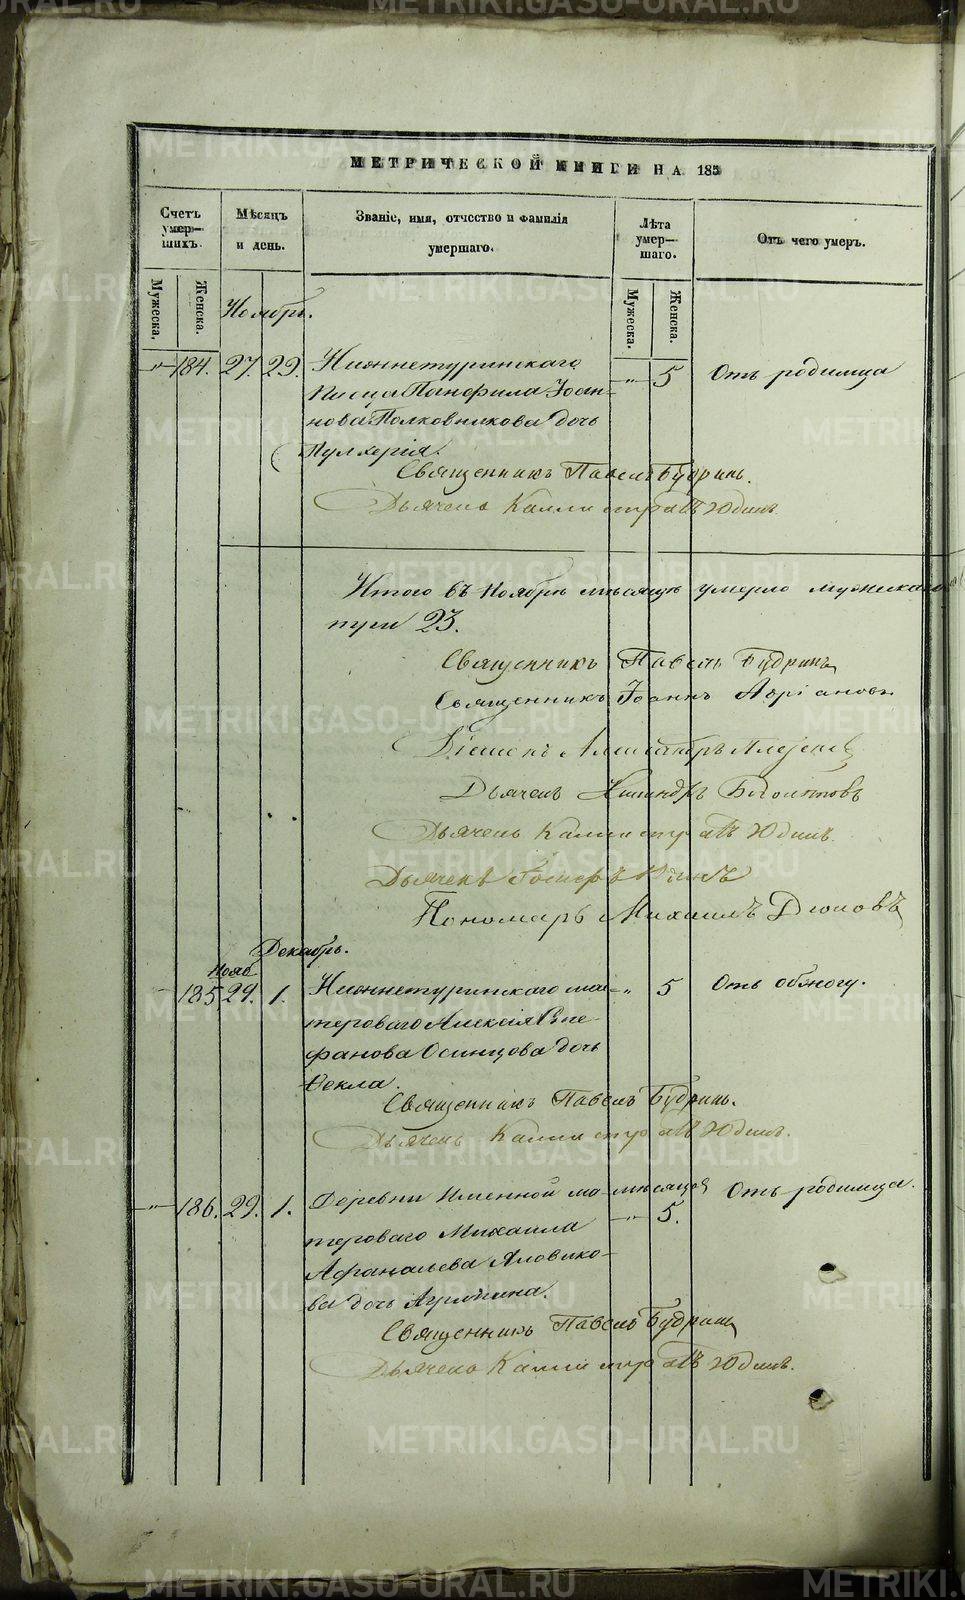 МЕТРИЧЕСКОЙ КНИГИ НА 185
Счетъ умер—шихъ.
Мѣсяцъ и день.
Званіе, имя, отчество и фамилія умершаго.
Лѣта умер—шаго.
Отъ чего умеръ.
Мужеска.
Женска.
Мужеска.
Женска.
Ноябрь.
-"- 184. 27. 29. Нижнетуринскаго -"- 5 Отъ родимца
писца Панфила Іоан-
нова Полковникова дочь
Пулхерія.
Священникъ Павелъ Будринъ.
Дьячекъ Каллистратъ Юдинъ.
Итого въ Ноябрѣ мѣсяцѣ умерло мужескаго
пула 23.
Священникъ Павелъ Будринъ
Священникъ Іоаннъ Адріановъ
Діаконъ Александръ
Дьячекъ
Дьячекъ Каллистратъ Юдинъ.
Дьячекъ
Пономарь Михаилъ
Декабрь.
Нояб.
185 29. 1. Нижнетуринскаго ма- -"- 5 Отъ обжогу.
стероваго Алексія Сте-
фанова Осинцова дочь
Ѳекла.
Священникъ Павелъ Будринъ.
Дьячекъ Каллистратъ Юдинъ.
-"- 186. 29. 1. Деревни Именной ма- мѣсяцов Отъ родимца.
стероваго Михаила -"- 5.
Афанасьева Яловико-
ва дочь Агрипина.
Священникъ Павелъ Будринъ
Дьячекъ Каллистратъ Юдинъ.
METRIKI.GASO-URAL.RU